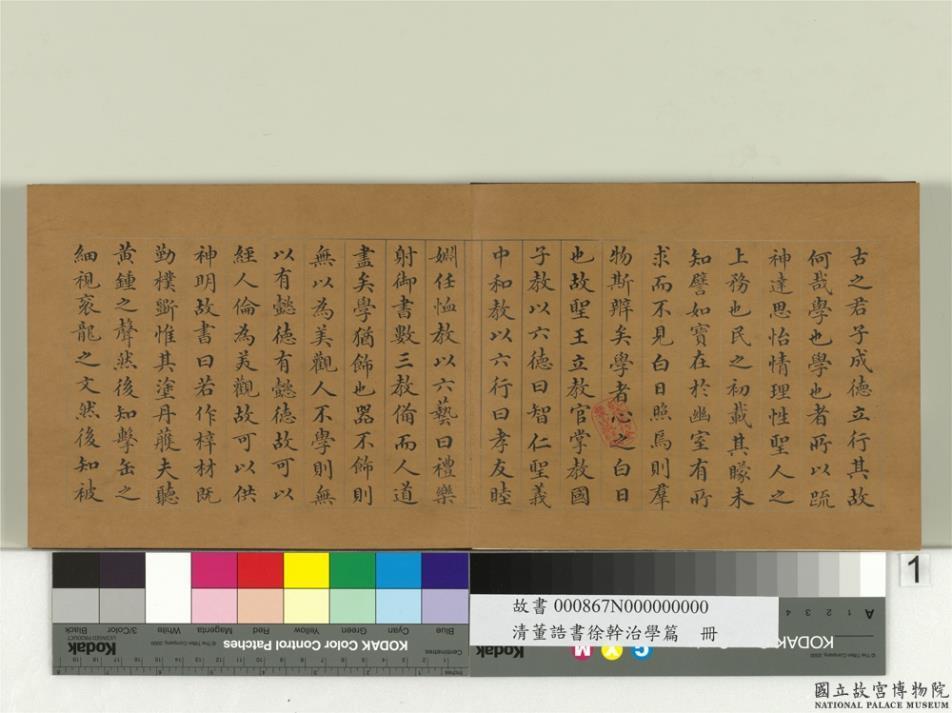 古之君子成德立行其故
何哉學也學也者所以疏
神達思怡情理性聖人之
上務也民之初載其矇未
知譬如寶在於幽室有所
求而不見白日照焉則羣
物斯辨矣學者心之白日
也故聖王立教官掌教國
子教以六德曰智仁聖義
中和教以六行曰孝友睦
婣任恤教以六藝曰禮樂
射御書數三教備而人道
畫矣學猶飾也器不飾則
無以為美觀人不學則無
以有懿德有懿德故可以
經人倫為美觀故可以供
神明故書曰若作梓材既
勤樸斲惟其塗丹雘夫聽
黃鍾之聲然後知擊缶之
細視衮龍之文然後知被
1
故書 000867N000000000
清董誥書徐幹治學篇 冊
Blue Cyan Green Yellow Red Magenta White 3/Color Black
Centimetres
KODAK Color Control Patches
Kodak
LICENSED PRODUCT
© The Tiffen Company, 2000
A 1 2 3 4
KODAK
© The Tiffen Company, 2000
C Y M
Kodak
國立故宮博物院
NATIONAL PALACE MUSEUM